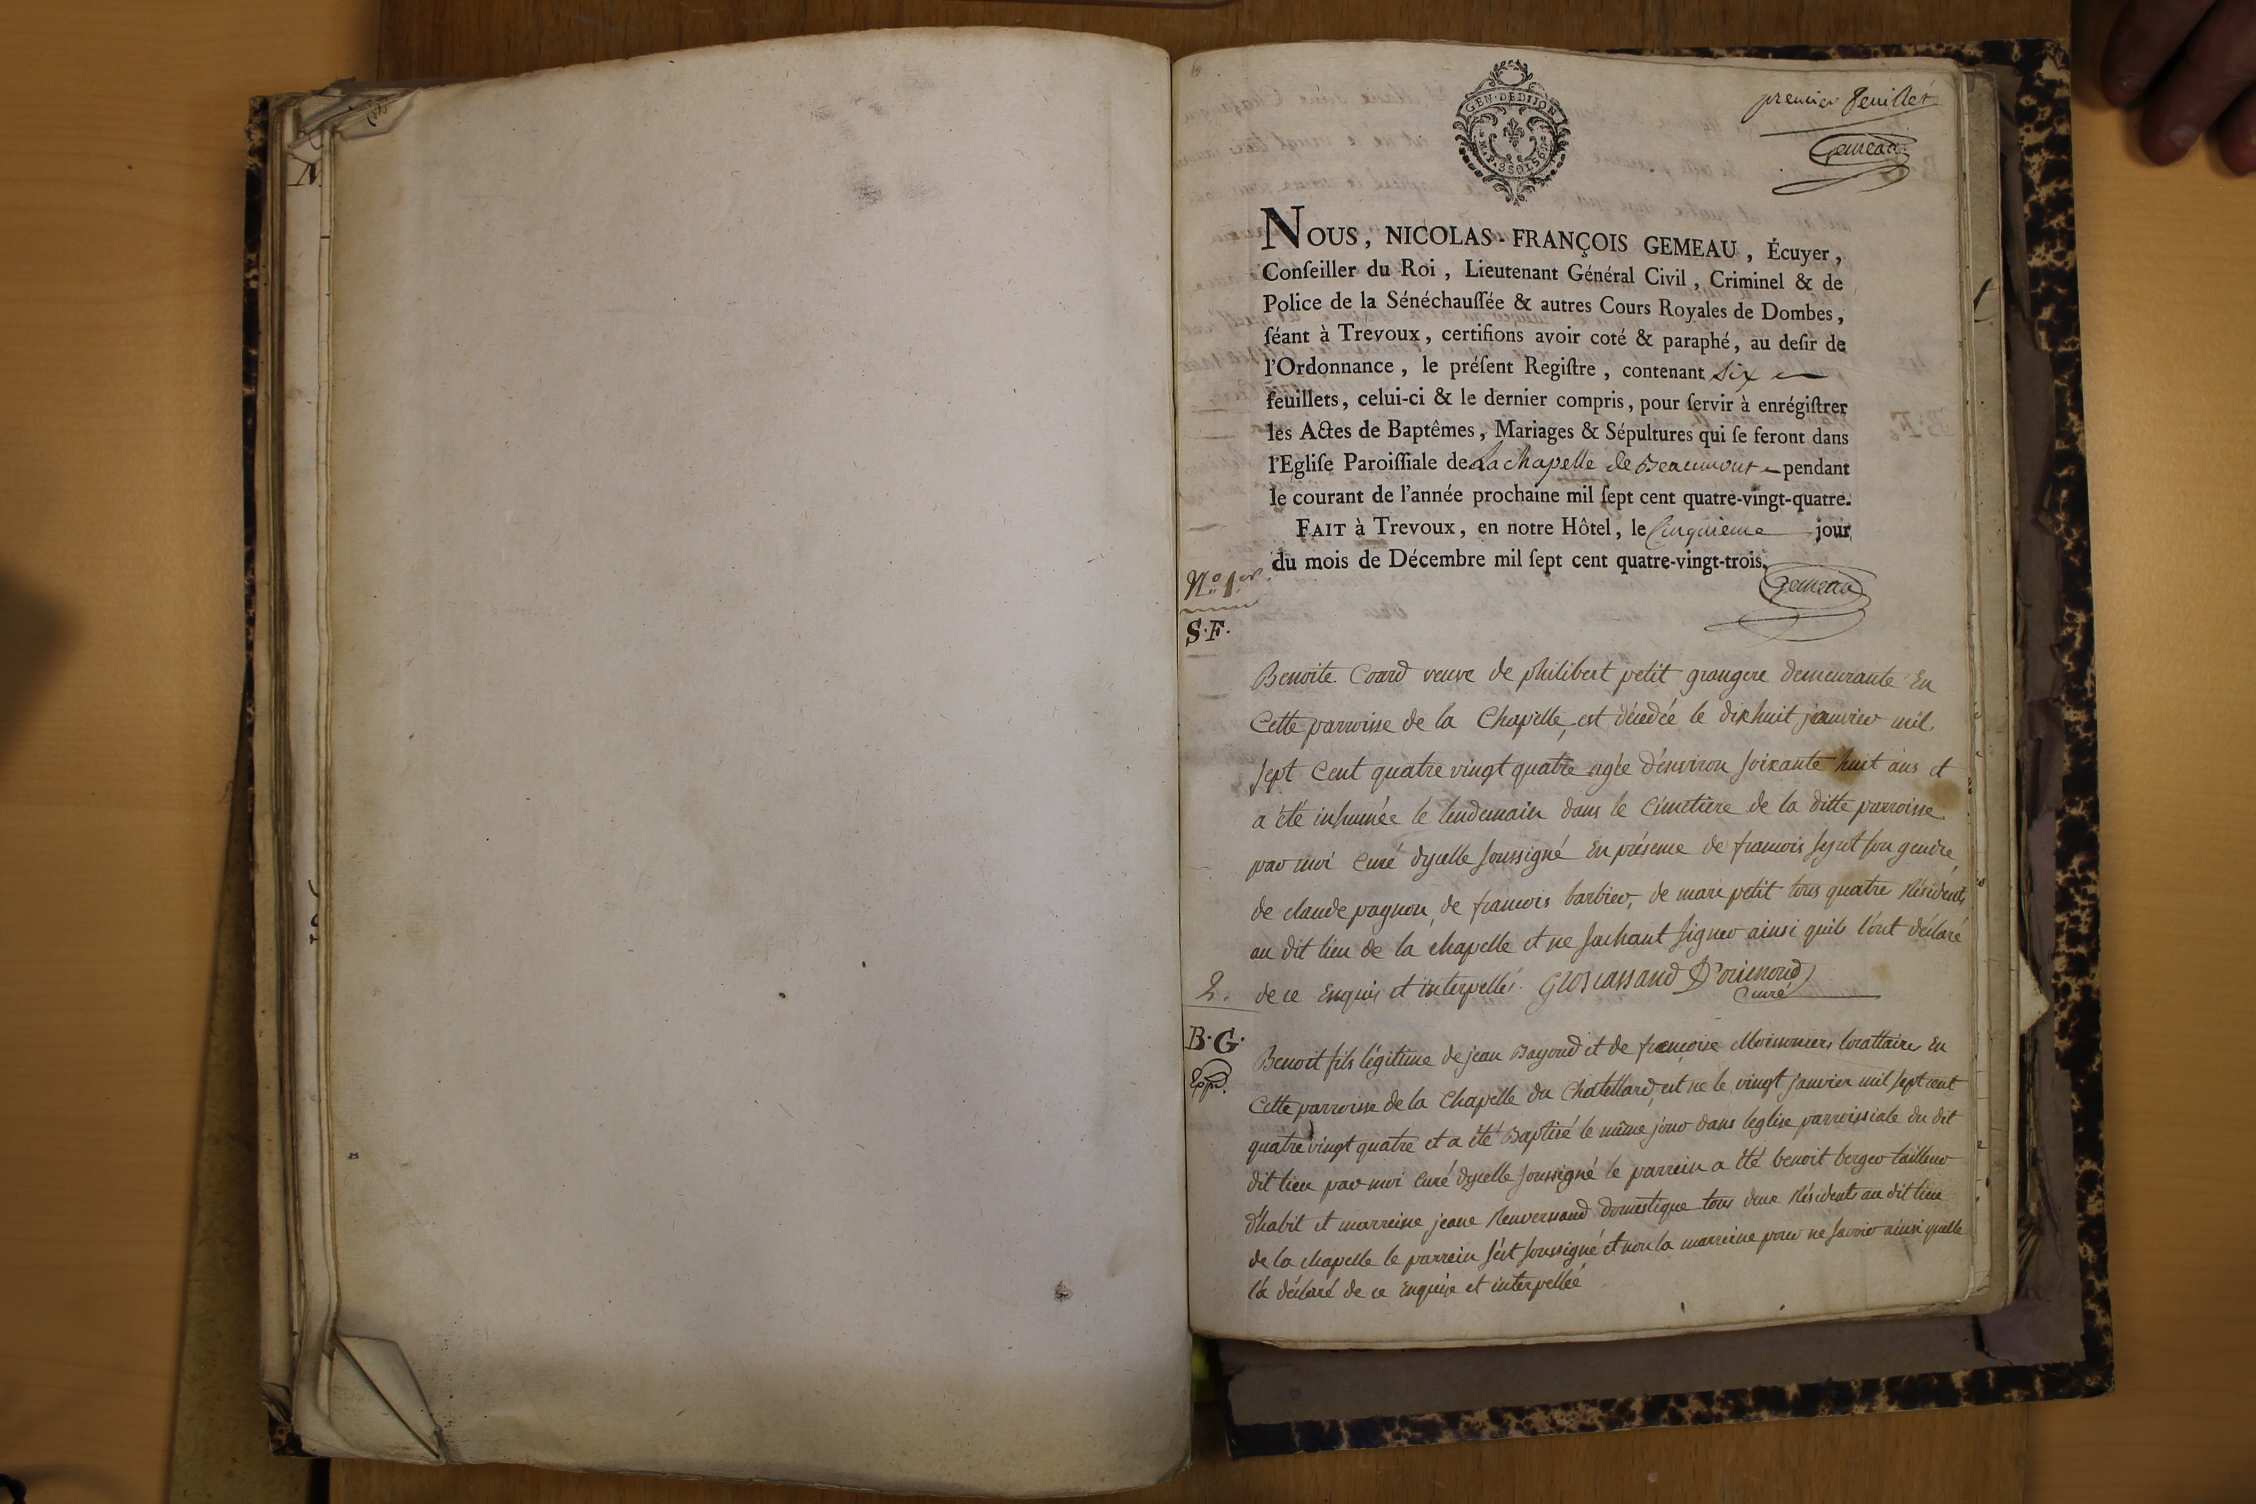 GEN·DE DIJON
premier feuillet
Gemeau
NOUS, NICOLAS-FRANÇOIS GEMEAU, Écuyer,
Conſeiller du Roi, Lieutenant Général Civil, Criminel & de
Police de la Sénéchauſſée & autres Cours Royales de Dombes,
ſéant à Trevoux, certifions avoir coté & paraphé, au deſir de
l'Ordonnance, le préſent Regiſtre, contenant Six
feuillets, celui-ci & le dernier compris, pour ſervir à enrégiſtrer
les Actes de Baptêmes, Mariages & Sépultures qui ſe feront dans
l'Egliſe Paroiſſiale de La chapelle de Beaumont pendant
le courant de l'année prochaine mil ſept cent quatre-vingt-quatre.
FAIT à Trevoux, en notre Hôtel, le Cinquieme jour
du mois de Décembre mil ſept cent quatre-vingt-trois.
Gemeau
No. 1er.
S.F.
Benoite Coard veuve de philibert petit grangere demeurante En
Cette parroisse de la Chapelle, est décedée le dixhuit janvier mil
sept Cent quatre vingt quatre agée d'environ soixante huit ans et
a été inhumée le lendemain dans le Cimetiere de la ditte parroisse
par moi Curé dycelle soussigné En présence de francois son gendre,
de claude pagnon, de francois barbier, de marc petit tous quatre Résidents
au dit lieu de la chapelle et ne sachant signer ainsi quils l'ont déclaré
de ce Enquis et interpellés. Groscassand D'orimond
Curé
2.
B.G.
Benoit fils légitime de jean Bayoud et de francoise Moissoniers locattaires En
Cette parroisse de la Chapelle du Chatellard, est ne le vingt janvier mil sept cent
quatre vingt quatre et a été Baptisé le même jour dans leglise parroissiale du dit
dit lieu par moi Curé dycelle soussigné le parrein a été benoit berger tailleur
d'habit et marreine jeane Renvernaud domestique tous deux Résidents au dit lieu
de la chapelle le parrein s'est soussigné et non la marreine pour ne savoir ainsi quelle
l'a déclaré de ce Enquise et interpellée